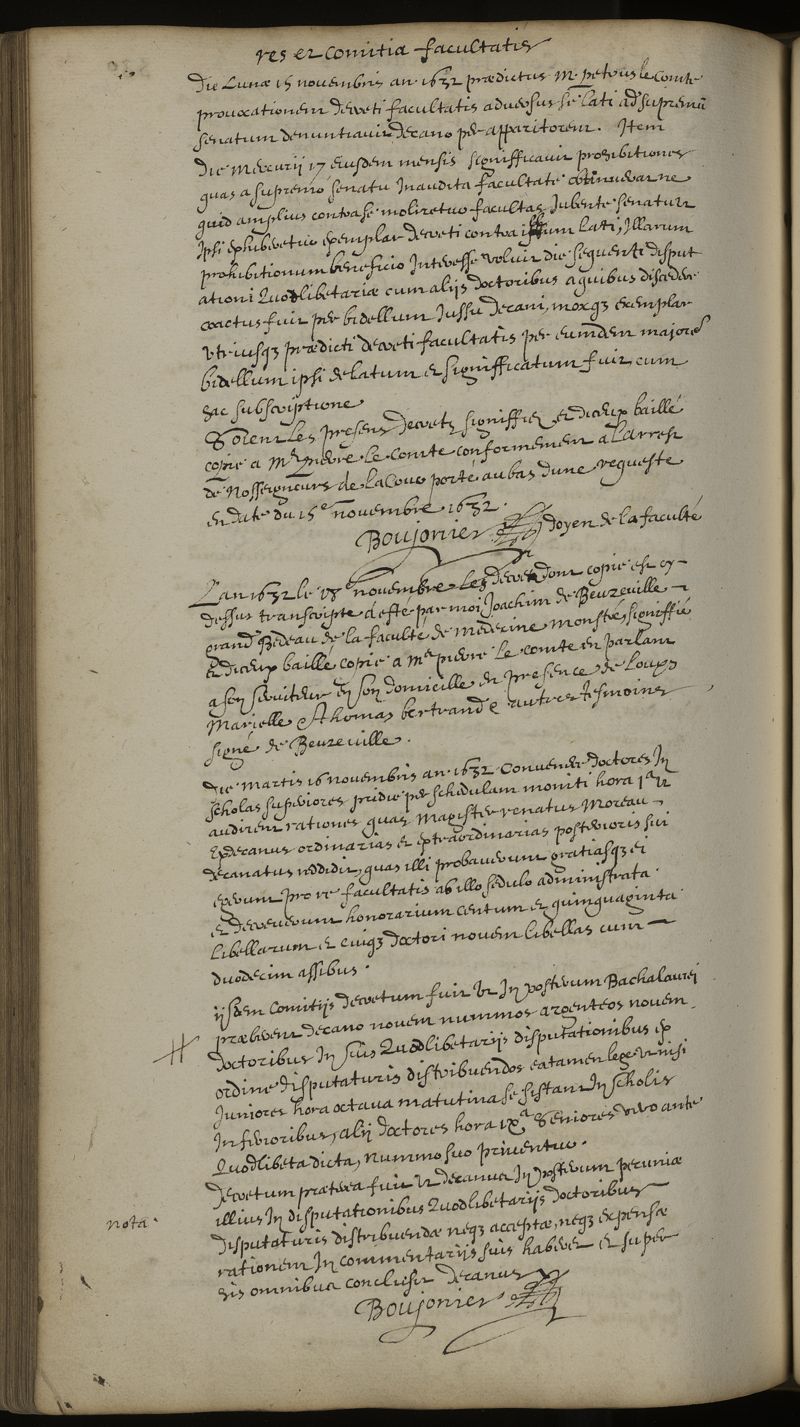 res et comitia facultatis
Die Lunæ 15 novembris an. 1632 prædictus M. petrus le Comte
provocationem decreti facultatis adversus se lati ad supremū
senatum denuntiavit decano per apparitorem. Item
Die Mercurij 17 eiusdem mensis signifficavit prohibitiones
quas a supremo senatu Inaudita facultate obtinuerat ne
quid amplius contra se moliretur facultas, Iubente senatu ut
Ipsi exhiberetur exemplar decreti contra ipsum lati, Illarum
prohibitionum beneficio Interesse voluit die sequenti disput
ationi Quodlibetariæ cum alijs doctoribus a quibus discedere
coactus fuit per bidellum Iussu decani, moxq3 exemplar
utriusq3 prædicti decreti facultatis per eumdem majorē
bidellum ipsi delatum et signifficatum fuit, cum
hac subscriptione
Soient les presens decretz signiffiez et diceux baillé
copie a Mr pierre le Comte conformement a Larrest
de Nosseigneurs de la Cour porté au bas dune requeste
en date du 15e novembre 1632.
Boujonier doyen de la faculté
Lan 1632 le 18e novembre Les decretz dont copie est cy-
dessus transcripte a este par moi Joachim de Beuzeville
grand Bedeau de la faculté de Medecine monstré, signiffié
et diceux baillé copie a Mr pierre le Comte en parlant
a son serviteur en son domicille en presence de Louys
Marielle & thomas bertrand & autres tesmoins
signé de Beuzeville.
Die Martis 16 novembris an. 1632 Convenere doctores In
scholas superiores pridie per schedulam moniti hora 1a ut
audirent rationes quas Magister renatus Moreau
Exdecanus ordinarias et extraordinarias posterioris sui
decanatus reddidit, quas illi probaverunt gratiasq3 ei
egerunt pro re facultatis ab illo sedulo administrata
et decreverunt honorarium centum et quinquaginta
libellarum et cuiq3 doctori novem libellas cum
duodecim assibus.
ijsdem Comitijs decretum fuit ut In posterum Bachalaurei
præberent decano novem nummos argenteos novem
doctoribus In suis Quodlibetarijs disputationibus ex
ordine disputaturis distribuendos ea tamen lege ut nisi
Juniores hora octava matutina se sistant In scholis
Inferioribus, alij doctores hora ixa Seniores vero ante
Quodlibeta dicta, nummo suo priventur.
nota.
decretum præterea fuit ut decanus In posterum pecuniæ
illius In disputationibus Quodlibetarijs doctoribus
disputaturis distribuendæ neq3 acceptæ, neq3 expensæ
rationem In commentarijs suis haberet et super
his omnibus conclusit decanus
Boujonier